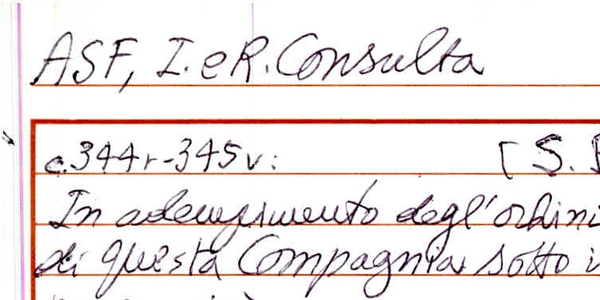 ASF, I. e R. Consulta
c. 344r-345v: [ S.
In adempimento degl'ordini
di questa Compagnia sotto